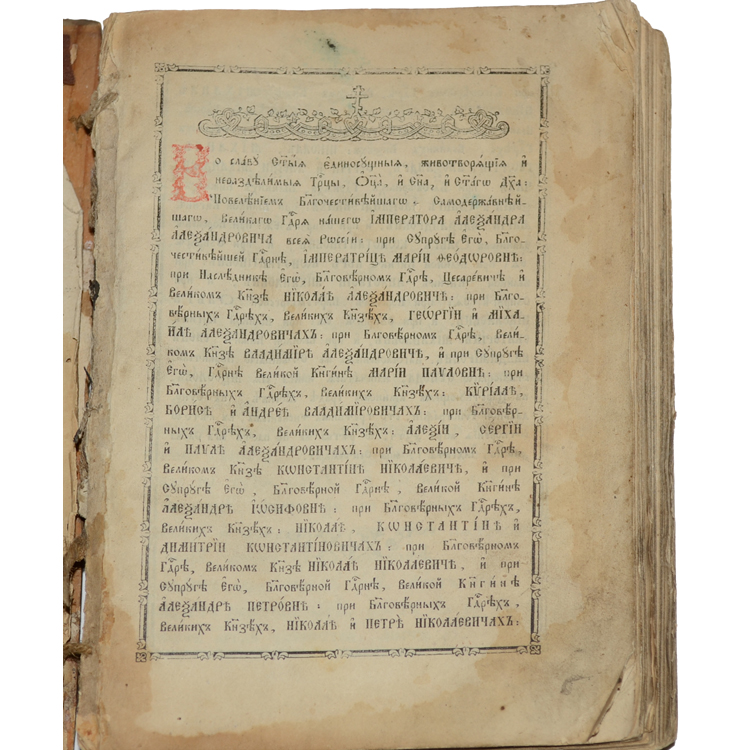 Во славу Ст҃ыѧ Е҆диносꙋщныѧ, животворѧ́щїѧ и҆
нераздѣлимыѧ Трⷪ҇цы, Ѻ҆ц҃а̀, и҆ Сн҃а, и҆ Ст҃а́гѡ Дх҃а:
Повелѣ́нїемъ Бл҃гочести́вѣйшагѡ, Самодержа́внѣй-
шагѡ, Вели́кагѡ Гдⷭ҇рѧ на́шегѡ І҆МПЕРАТОРА А҆ЛЕѮАНДРА
А҆ЛЕѮАНДРОВИЧА всеѧ̀ Рѡссі́и: при Сꙋпрꙋ́гѣ Е҆гѡ̀, Бл҃го-
чести́вѣйшей Гдⷭ҇рнѣ, І҆МПЕРАТРИЦѢ МАРІ́И ѲЕОДѠРОВНѢ:
при Наслѣ́дникѣ Е҆гѡ̀, Бл҃говѣ́рномъ Гдⷭ҇рѣ, Цесаре́вичѣ и҆
Вели́комъ Кн҃зѣ НІКОЛАѢ А҆ЛЕѮАНДРОВИЧѢ: при Бл҃го-
вѣ́рныхъ Гдⷭ҇рѣхъ, Вели́кихъ Кн҃зѣхъ, ГЕѠРГІИ и҆ МІХА-
ИЛѢ А҆ЛЕѮАНДРОВИЧАХЪ: при Бл҃говѣ́рномъ Гдⷭ҇рѣ, Вели́-
комъ Кн҃зѣ ВЛАДИМІРѢ А҆ЛЕѮАНДРОВИЧѢ, и҆ при Сꙋпрꙋ́гѣ
Е҆гѡ̀, Гдⷭ҇рнѣ Вели́кой Кн҃ги́нѣ МАРІ́И ПАѴЛОВНѢ: при
Бл҃говѣ́рныхъ Гдⷭ҇рѣхъ, Вели́кихъ Кн҃зѣхъ: КѴРІЛЛѢ,
БОРИСѢ и҆ А҆НДРЕѢ ВЛАДИМІРОВИЧАХЪ: при Бл҃говѣ́р-
ныхъ Гдⷭ҇рѣхъ, Вели́кихъ Кн҃зѣхъ: А҆ЛЕѮІИ, СЕРГІИ
и҆ ПАѴЛѢ А҆ЛЕѮАНДРОВИЧАХЪ: при Бл҃говѣ́рномъ Гдⷭ҇рѣ,
Вели́комъ Кн҃зѣ КѠНСТАНТІНѢ НІКОЛАЕВИЧѢ, и҆ при
Сꙋпрꙋ́гѣ Е҆гѡ̀, Бл҃говѣ́рной Гдⷭ҇рнѣ, Вели́кой Кн҃ги́нѣ
А҆ЛЕѮАНДРѢ І҆ѠСИФОВНѢ: при Бл҃говѣ́рныхъ Гдⷭ҇рѣхъ,
Вели́кихъ Кн҃зѣхъ: НІКОЛАѢ, КѠНСТАНТІНѢ и҆
ДИМИТРІИ КѠНСТАНТІНОВИЧАХЪ: при Бл҃говѣ́рномъ
Гдⷭ҇рѣ, Вели́комъ Кн҃зѣ НІКОЛАѢ НІКОЛАЕВИЧѢ, и҆ при
Сꙋпрꙋ́гѣ Е҆гѡ̀, Бл҃говѣ́рной Гдⷭ҇рнѣ, Вели́кой Кн҃ги́нѣ
А҆ЛЕѮАНДРѢ ПЕТРО́ВНѢ: при Бл҃говѣ́рныхъ Гдⷭ҇рѣхъ,
Вели́кихъ Кн҃зѣхъ, НІКОЛАѢ и҆ ПЕТРѢ НІКОЛАЕВИЧАХЪ: